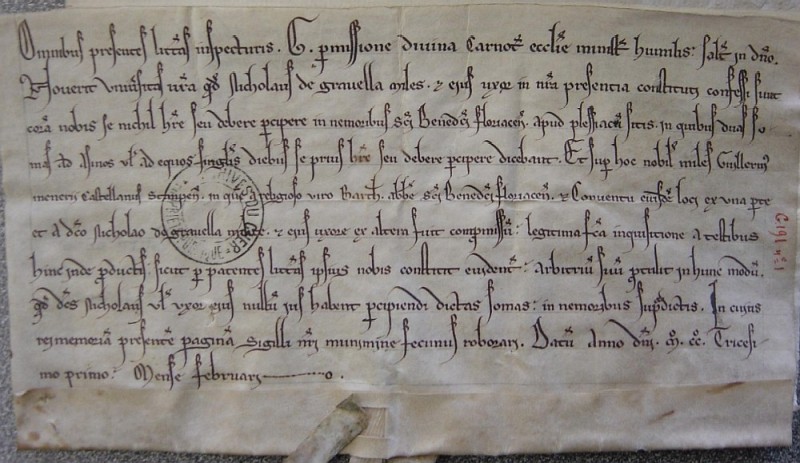 Omnibus presentes litt̃as inspecturis. G. p̃missione divina Carnot̃ ecclie minist̃ humilis: salt̃ in dño.
Noverit univ̾sitas vr̃a qđ Nicholaus de gravella miles. ⁊ ejus uxor in nr̃a presentia constituti confessi sunt
corã nobis se nichil hr̃e seu debere p̾cipere in nemoribus Sc̃i Benedc̃i floriaceñ. apud plessiacũ sitis. in quibus duas so
mas ad asinos vl̾ ad equos singlis diebus se prius hr̃e seu debere p̾cipere dicebant. Et sup̾ hoc nobil̾ miles Guillerm̾
menerii Castellanus Stampeñ. in quẽ a religioso viro Barth. abb̃e Sc̃i Benedc̃i floriaceñ. ⁊ Conventu ejusdẽ loci ex una p̾te
et a dc̃o Nicholao de gravella milite. ⁊ ejus uxore ex altera fuit comp̾missũ: legitima fc̃a inquisitione a testibus
hinc inde p̾ductis. sicut p̾ patentes litt̃as ipsius nobis constitit evident̾: arbitriũ suũ p̾tulit in hunc modũ.
qđ dc̃s Nicholaus vl̾ uxor ejus nullũ jus habent p̾cipiendi dictas somas: in nemoribus sup̾dictis. In cujus
rei memoriã presentẽ paginã sigilli nr̃i munimine fecimus roborari. Datũ Anno dñi. M̊. CC̊. Tricesi
mo primo. Mense februarii.